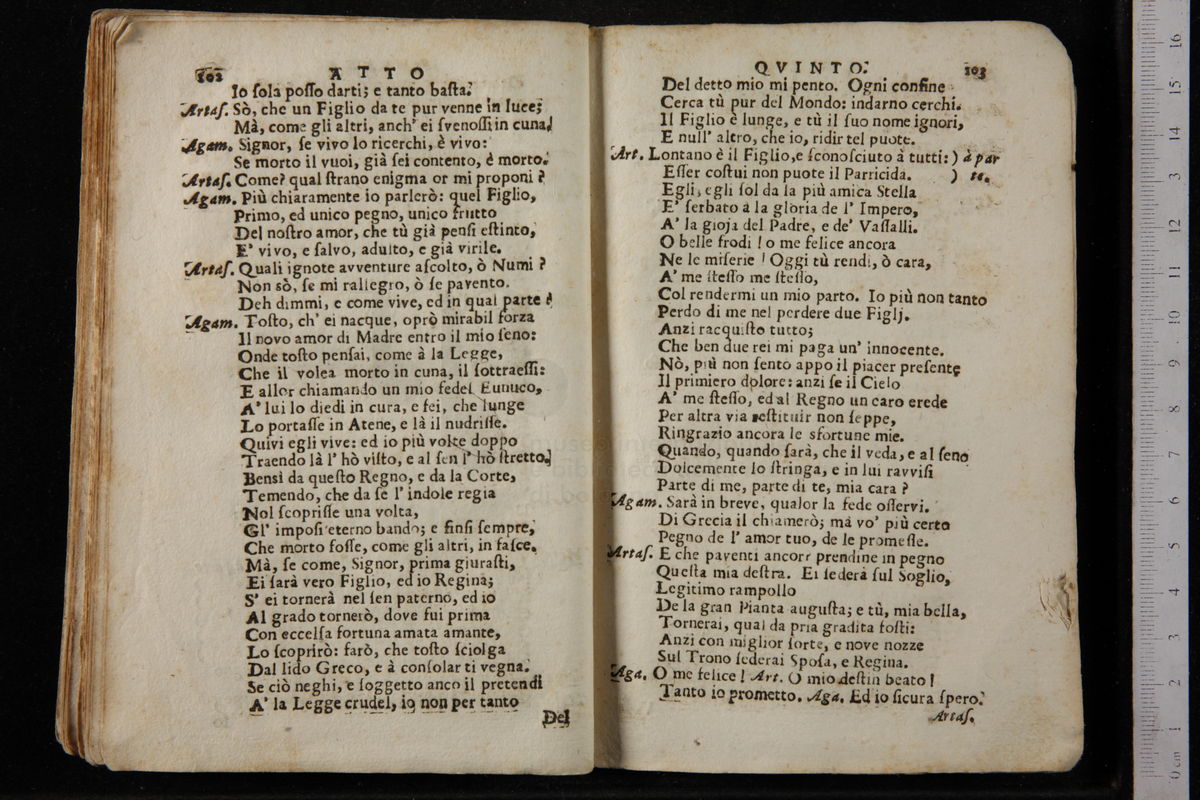 102 ATTO
Io ſola poſſo darti; e tanto baſta.
Artaſ. Sò, che un Figlio da te pur venne in luce;
Mà, come gli altri, anch' ei ſvenoſſi in cuna.
Agam. Signor, ſe vivo lo ricerchi, è vivo:
Se morto il vuoi, già ſei contento, è morto.
Artaſ. Come? qual ſtrano enigma or mi proponi?
Agam. Più chiaramente io parlerò: quel Figlio,
Primo, ed unico pegno, unico frutto
Del noſtro amor, che tù già penſi eſtinto,
E' vivo, e ſalvo, adulto, e già virile.
Artaſ. Quali ignote avventure aſcolto, ò Numi?
Non sò, ſe mi rallegro, ò ſe pavento.
Deh dimmi, e come vive, ed in qual parte?
Agam. Toſto, ch' ei nacque, oprò mirabil forza
Il novo amor di Madre entro il mio ſeno:
Onde toſto penſai, come à la Legge,
Che il volea morto in cuna, il ſottraeſſi:
E allor chiamando un mio fedel Eunuco,
A' lui lo diedi in cura, e fei, che lunge
Lo portaſſe in Atene, e là il nudriſſe.
Quivi egli vive: ed io più volte doppo
Traendo là l' hò viſto, e al ſen l' hò ſtretto.
Bensì da queſto Regno, e da la Corte,
Temendo, che da ſe l' indole regia
Nol ſcopriſſe una volta,
Gl' impoſi eterno bando; e finſi ſempre,
Che morto foſſe, come gli altri, in faſce.
Mà, ſe come, Signor, prima giuraſti,
Ei ſarà vero Figlio, ed io Regina;
S' ei tornerà nel ſen paterno, ed io
Al grado tornerò, dove fui prima
Con eccelſa fortuna amata amante,
Lo ſcoprirò: farò, che toſto ſciolga
Dal lido Greco, e à conſolar ti vegna.
Se ciò neghi, e ſoggetto anco il pretendi
A' la Legge crudel, io non per tanto
Del
QVINTO. 103
Del detto mio mi pento. Ogni confine
Cerca tù pur del Mondo: indarno cerchi.
Il Figlio è lunge, e tù il ſuo nome ignori,
E null' altro, che io, ridir tel puote.
Art. Lontano è il Figlio, e ſconoſciuto à tutti: ) à par
Eſſer coſtui non puote il Parricida. ) te.
Egli, egli ſol da la più amica Stella
E' ſerbato a la gloria de l' Impero,
A' la gioja del Padre, e de' Vaſſalli.
O belle frodi! o me felice ancora
Ne le miſerie! Oggi tù rendi, ò cara,
A' me ſteſſo me ſteſſo,
Col rendermi un mio parto. Io più non tanto
Perdo di me nel perdere due Figlj.
Anzi racquiſto tutto;
Che ben due rei mi paga un' innocente.
Nò, più non ſento appo il piacer preſente
Il primiero dolore: anzi ſe il Cielo
A' me ſteſſo, ed al Regno un caro erede
Per altra via reſtituir non ſeppe,
Ringrazio ancora le sfortune mie.
Quando, quando ſarà, che il veda, e al ſeno
Dolcemente lo ſtringa, e in lui ravviſi
Parte di me, parte di te, mia cara?
Agam. Sarà in breve, qualor la fede oſſervi.
Di Grecia il chiamerò; má vo' più certo
Pegno de l' amor tuo, de le promeſſe.
Artaſ. E che paventi ancor? prendine in pegno
Queſta mia deſtra. Ei ſederà ſul Soglio,
Legitimo rampollo
De la gran Pianta auguſta; e tù, mia bella,
Tornerai, qual da pria gradita foſti:
Anzi con miglior ſorte, e nove nozze
Sul Trono ſederai Spoſa, e Regina.
Aga. O me felice! Art. O mio deſtin beato!
Tanto io prometto. Aga. Ed io ſicura ſpero.
Artaſ.